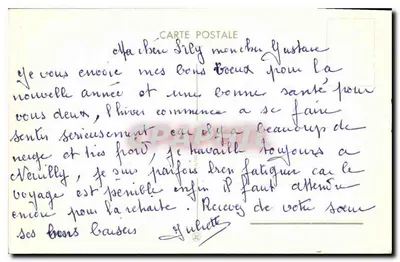 CARTE POSTALE
Ma chère Lily mon cher Gustave
Je vous envoie mes bons voeux pour la
nouvelle année et une bonne santé pour
vous deux, l'hiver commence a se faire
sentir serieusement car il y a beaucoup de
neige et très froid, je travaille toujours a
Neuilly, je suis parfois bien fatiguer car le
voyage est penible enfin il faut attendre
encore pour la retraite. Recevez de votre soeur
ses bons baisers Juliette